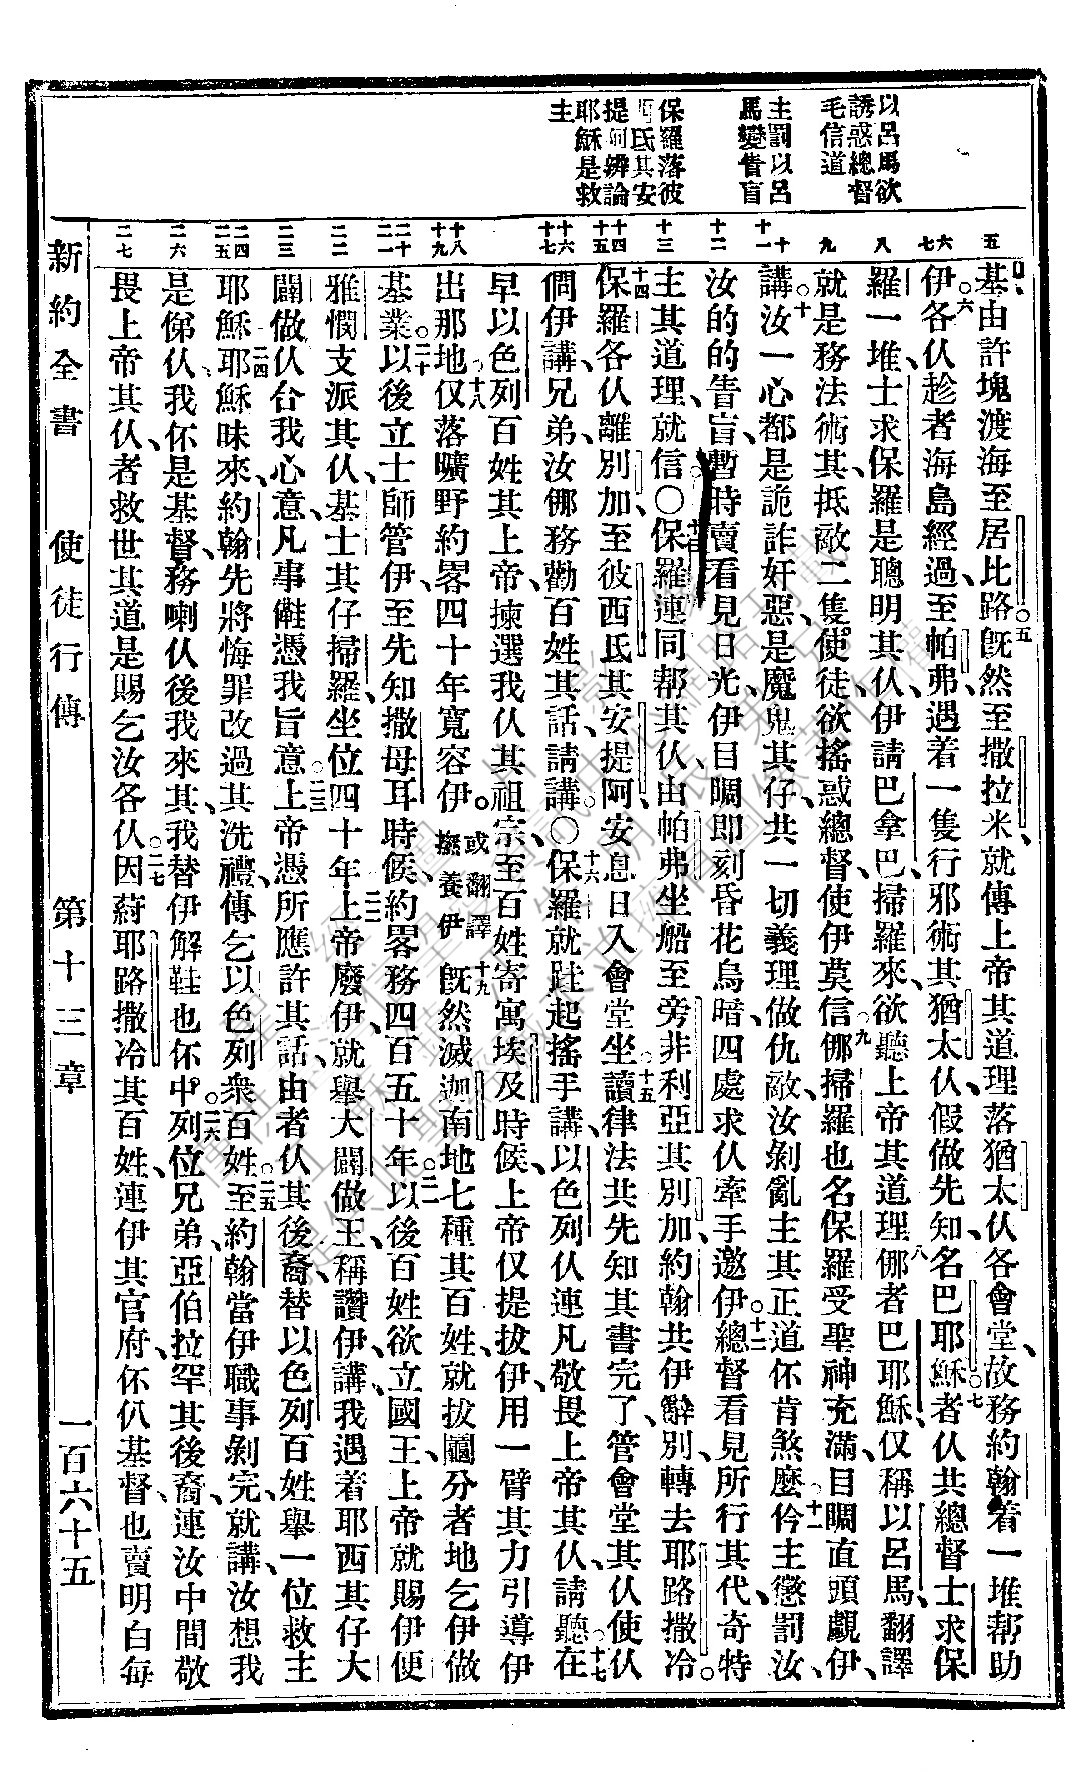 以呂馬欲
誘惑總督
毛信道
主罰以呂
馬變眚盲
保羅落彼
西氏其安
提阿辨論
耶穌是救
主
五
六
七
八
九
十
十一
十二
十三
十四
十五
十六
十七
十八
十九
二十
二一
二二
二三
二四
二五
二六
二七
基由許塊渡海至居比路○五旣然至撒拉米、就傳上帝其道理落猶太仈各會堂、故務約翰着一堆幫助
○六伊各仈趁者海島經過、至帕弗、遇着一隻行邪術其猶太仈、假做先知、名巴耶穌○七者仈共總督士求保
羅一堆、士求保羅是聰明其仈、伊請巴拿巴、掃羅來、欲聽上帝其道理、八㑚者巴耶穌、仅稱以呂馬、翻譯
就是務法術其、抵敵二隻使徒、欲搖惑總督、使伊莫信○九㑚掃羅也名保羅、受聖神充滿、目睭直頭覷伊、
講○十汝一心都是詭詐奸惡、是魔鬼其仔、共一切義理做仇敵、汝剝亂主其正道伓肯煞麼○十一仱主懲罰汝、
汝的的眚盲、暫時賣看見日光、伊目睭即刻昏花烏暗、四處求仈牽手邀伊○十二總督看見所行其代、奇特
主其道理、就信○十三保羅連同帮其仈、由帕弗坐船、至旁非利亞其別加、約翰共伊辭別、轉去耶路撒冷○
十四保羅各仈離別加、至彼西氏其安提阿、安息日入會堂坐○十五讀律法共先知其書完了、管會堂其仈、使仈
○十六僴伊講、兄弟、汝㑚務勸百姓其話、請講○十六保羅就跓起搖手講、以色列仈、連凡敬畏上帝其仈、請聽○十七在
早以色列百姓其上帝、揀選我仈其祖宗、至百姓寄寓埃及時候、上帝仅提拔伊、用一臂其力、引導伊
出那地○十八仅落曠野、約畧四十年寬容伊。或翻譯撫養伊 十九旣然滅迦南地七種其百姓、就拔鬮分者地乞伊做
基業○二十以後立士師管伊、至先知撒母耳時候、約畧務四百五十年○二一以後百姓欲立國王、上帝就賜伊便
雅憫支派其仈、基士其仔掃羅、坐位四十年○二二上帝廢伊、就舉大闢做王、稱讚伊講、我遇着耶西其仔大
闢、做仈合我心意、凡事儺憑我旨意○二三上帝憑所應許其話、由者仈其後裔、替以色列百姓、舉一位救主
耶穌○二四耶穌昧來、約翰先將悔罪改過其洗禮、傳乞以色列衆百姓○二五至約翰當伊職事剝完、就講、汝想我
是㑚仈、我伓是基督、務喇仈後我來其、我替伊解鞋也伓中○二六列位兄弟、亞伯拉罕其後裔、連汝中間敬
畏上帝其仈、者救世其道、是賜乞汝各仈○二七因蒔耶路撒冷其百姓、連伊其官府、伓仈基督、也賣明白每
新約全書 使徒行傳 第十三章 一百六十五